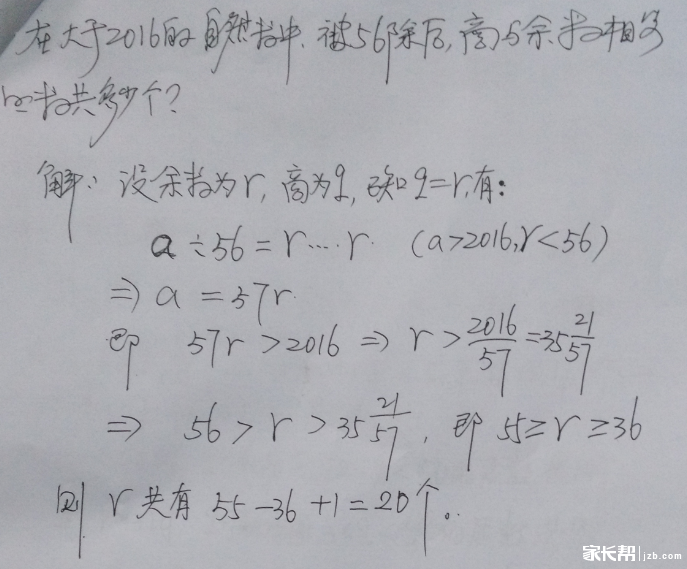 在大于2016的自然数中,被56除后,商与余数相等
的数共多少个?
解:设余数为r,商为q,已知q=r,有:
a÷56=r…r (a>2016,r<56)
⇒ a = 57r
即 57r>2016 ⇒ r > 2016/57 = 35 21/57
⇒ 56 > r > 35 21/57, 即 55≥r≥36
则 r共有 55-36+1=20个.
家长帮 jzb.com